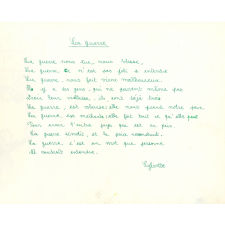 La guerre
La guerre nous tue, nous blesse,
La guerre, ce n'est pas joli à entendre
La guerre nous fait vivre malheureux.
Il y a des gens, qui ne peuvent même pas
leur
La guerre, est cruelle: elle nous prend notre
La guerre, est méchante: elle fait tout ce qu'elle peut
Pour avoir l'autre pays qui est en paix.
La guerre s'éteint, et la paix reconstruit.
La guerre, c'est un mot que personne
Ne voudrait entendre.